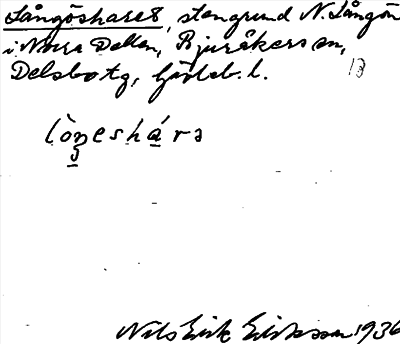 Långösharet, stengrund N. Långön
i Norra Dellen, Bjuråkers sn,
Delsbo tg, Gävleb. l.
lòŋeshára
Nils Erik Eriksson 1936